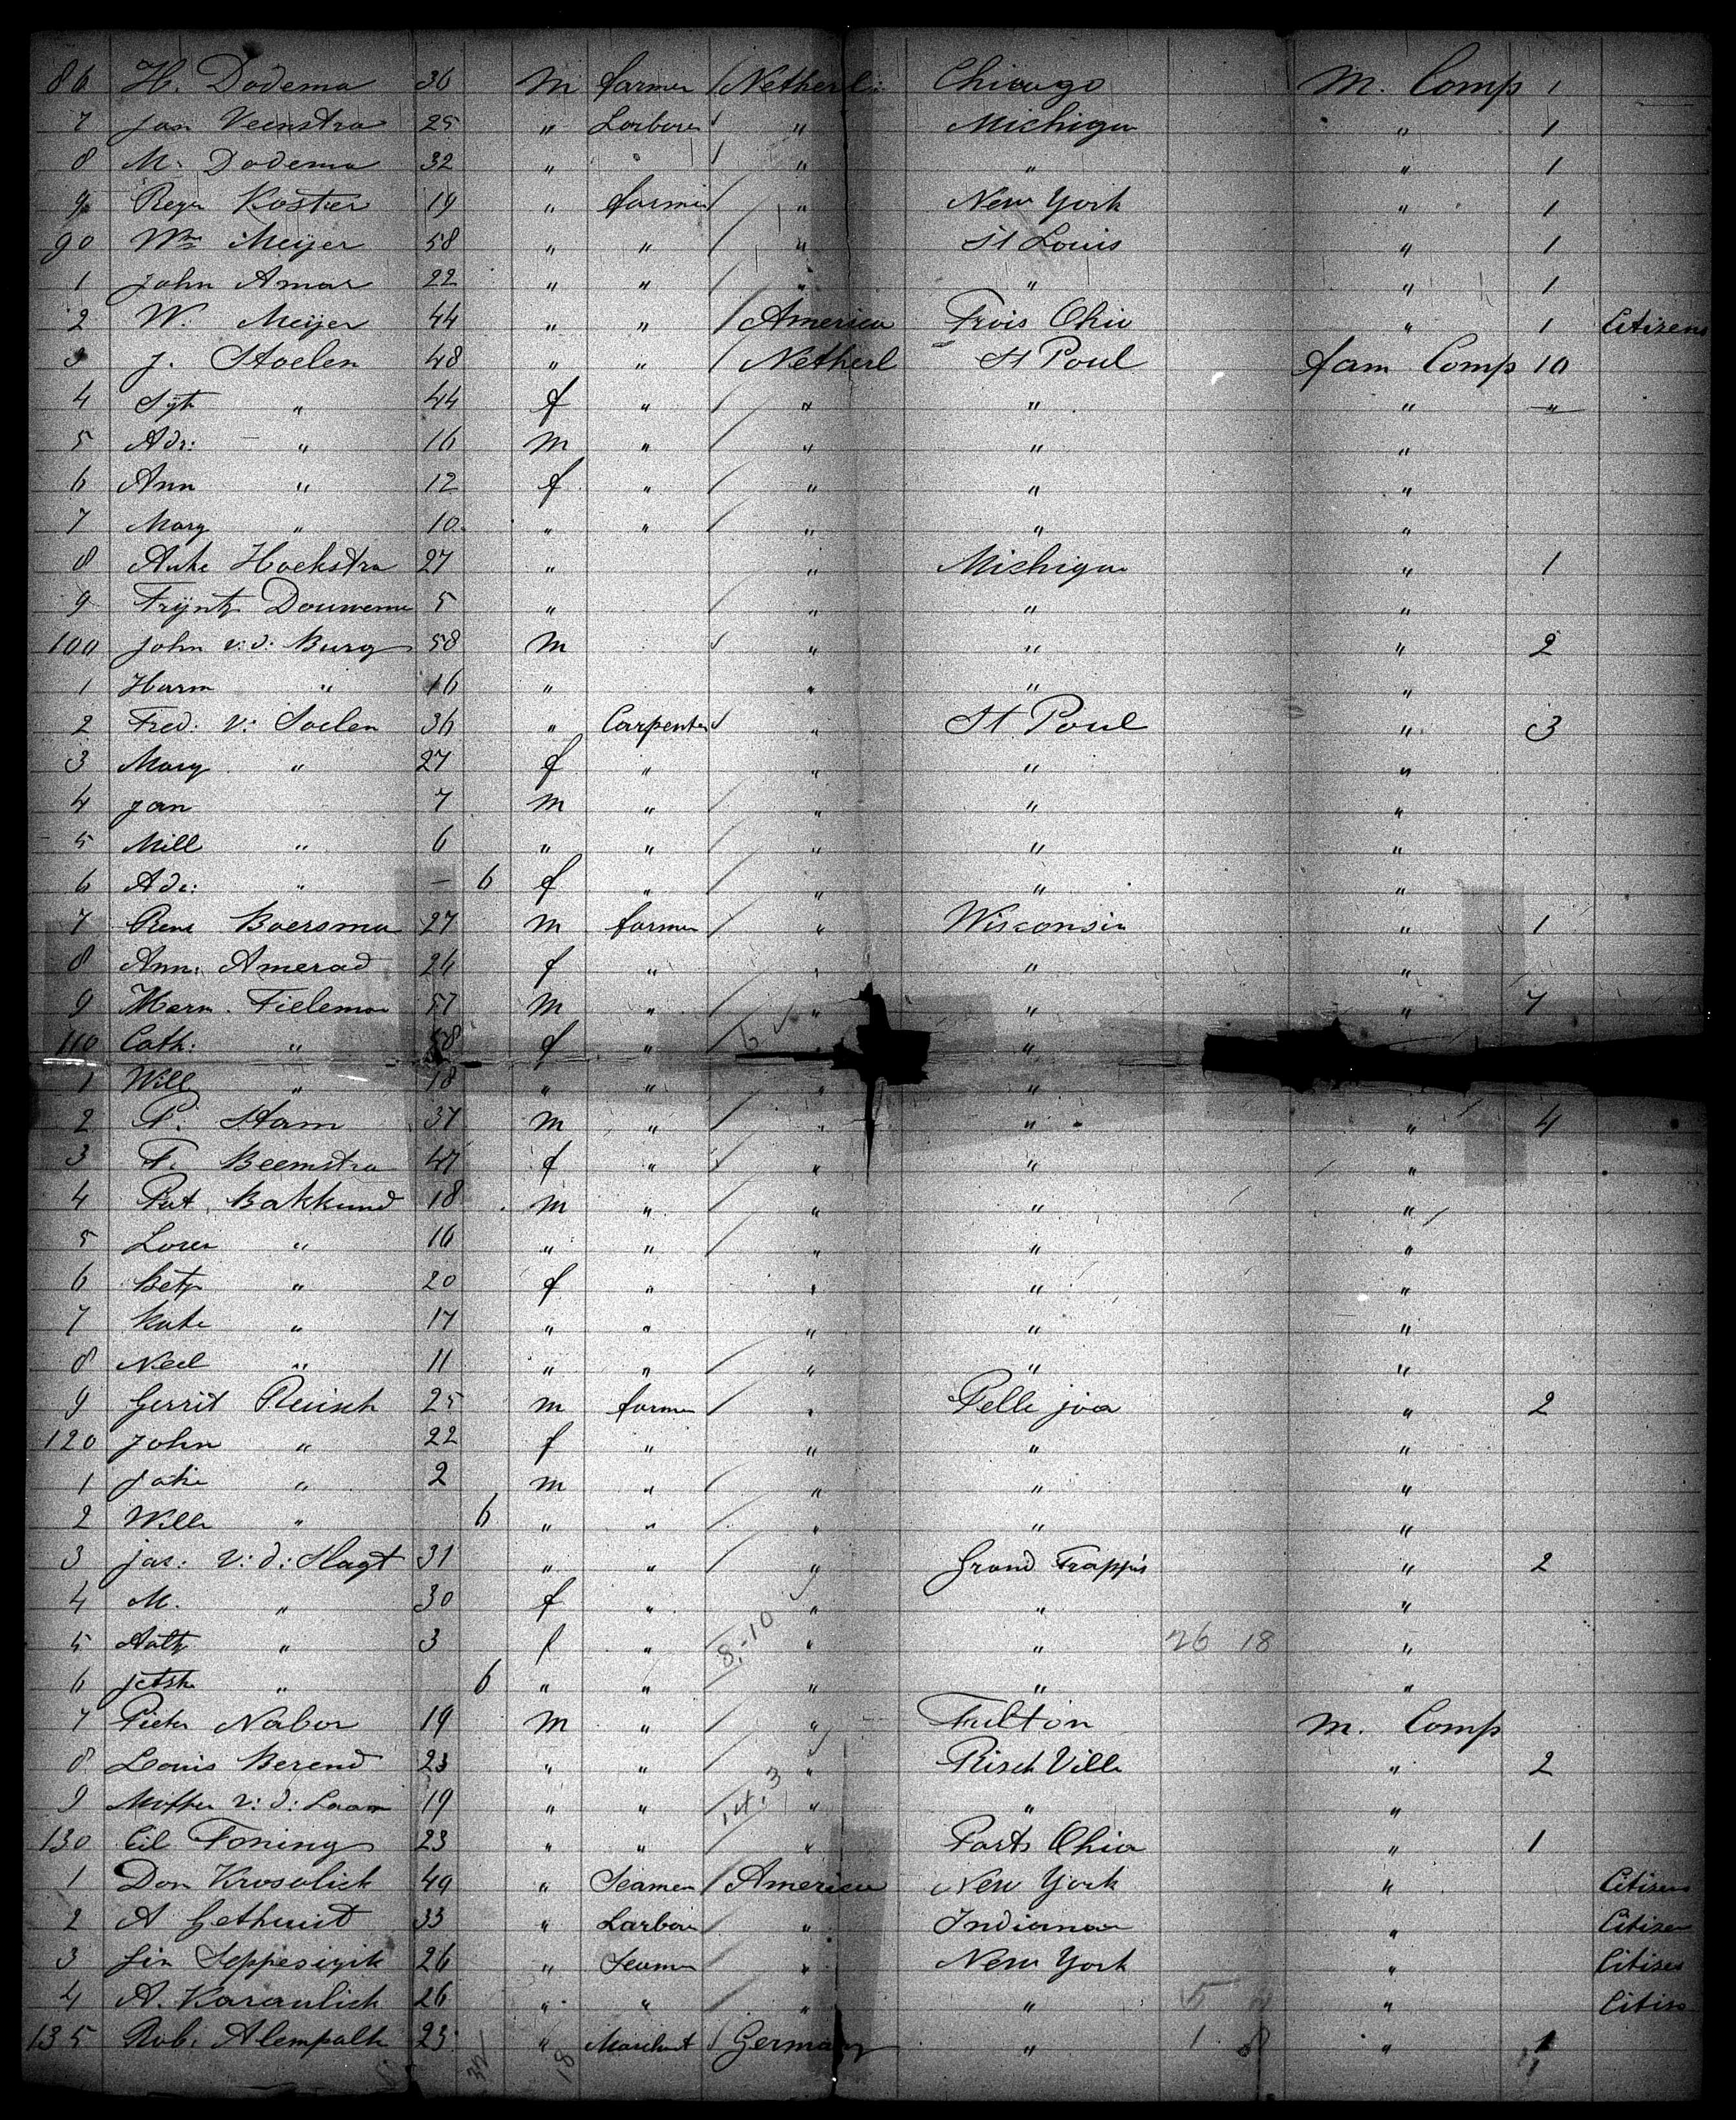 86 H. Dodema 36 m farmer / Netherl: Chicago M. Comp 1
7 Jan Veenstra 25 " Larborer " Michigan " 1
8 M. Dodema 32 " " / " " " 1
9 Reyn Koster 19 " farmer / " New York " 1
90 Wm Meijer 58 " " / " St Louis " 1
1 John Amar 22 " " / " " " 1
2 W. Meijer 44 " " / America Ohio " 1 Citizens
3 J. Stoelen 48 " " / Netherl St Poul fam Comp 10
4 Syt " 44 f " / " " " "
5 Adr: " 16 m " / " " "
6 Ann " 12 f " / " " "
7 Mary " 10 " " / " " "
8 Auke Hoekstra 27 " " Michigan " 1
9 Trijntj Douwema 5 " " " "
100 John v: d: Burg 58 m " " " 2
1 Harm " 16 " " " "
2 Fred: v: Soelen 36 " Carpenter " St. Poul " 3
3 Mary " 27 f " " " "
4 Jan 7 m " / " " "
5 Mill " 6 " " / " " "
6 Adr: " — 6 f " / " " "
7 Rene Boersma 27 m farmer / " Wisconsin " 1
8 Ann: Amerad 26 f " " " "
9 Harm. Tielemon 57 m " / " " " 7
110 Cath: " 58 f " / 6 " "
1 Will " 18 " " " "
2 P. Stam 37 m " / " " " 4
3 F. Beemstra 47 f " / " " "
4 Pat. Bakkund 18 m " / " " "
5 Loren " 16 " " / " " "
6 Betj " 20 f " " " "
7 Kate " 17 " " " " "
8 Neel " 11 " " / " " "
9 Gerrit Reisch 25 m farmer / " Pelle joa " 2
120 John " 22 f " / " " "
1 Jake " 2 m " / " " "
2 Will " 6 " " / " " "
3 Jas: v: d: Slagt 31 " " / " Grand Trappis " 2
4 M. " 30 f " " " "
5 Aaltj " 3 f " 8.-10 " " 26 18 "
6 Jetske " 6 " " " " "
7 Pieter Nabor 19 m " / " Fulton M. Comp
8 Louis Berend 23 " " / " Risch Ville " 2
9 v: d: Laan 19 " " 14.3 " " "
130 Cil Toning 23 " " / " Ports Ohio " 1
1 Don Krosolich 49 " Seamen / America New York " Citizens
2 A Gethuist 33 " Larborer / " Indiana " Citizen
3 Jin Seppesizik 26 " Seamen " New York " Citizen
4 A. Karaulich 26 " " / " " 5 " Citizen
135 Rob. Alempalk 23 " Marchent / Germany " 1 8 " 1
18